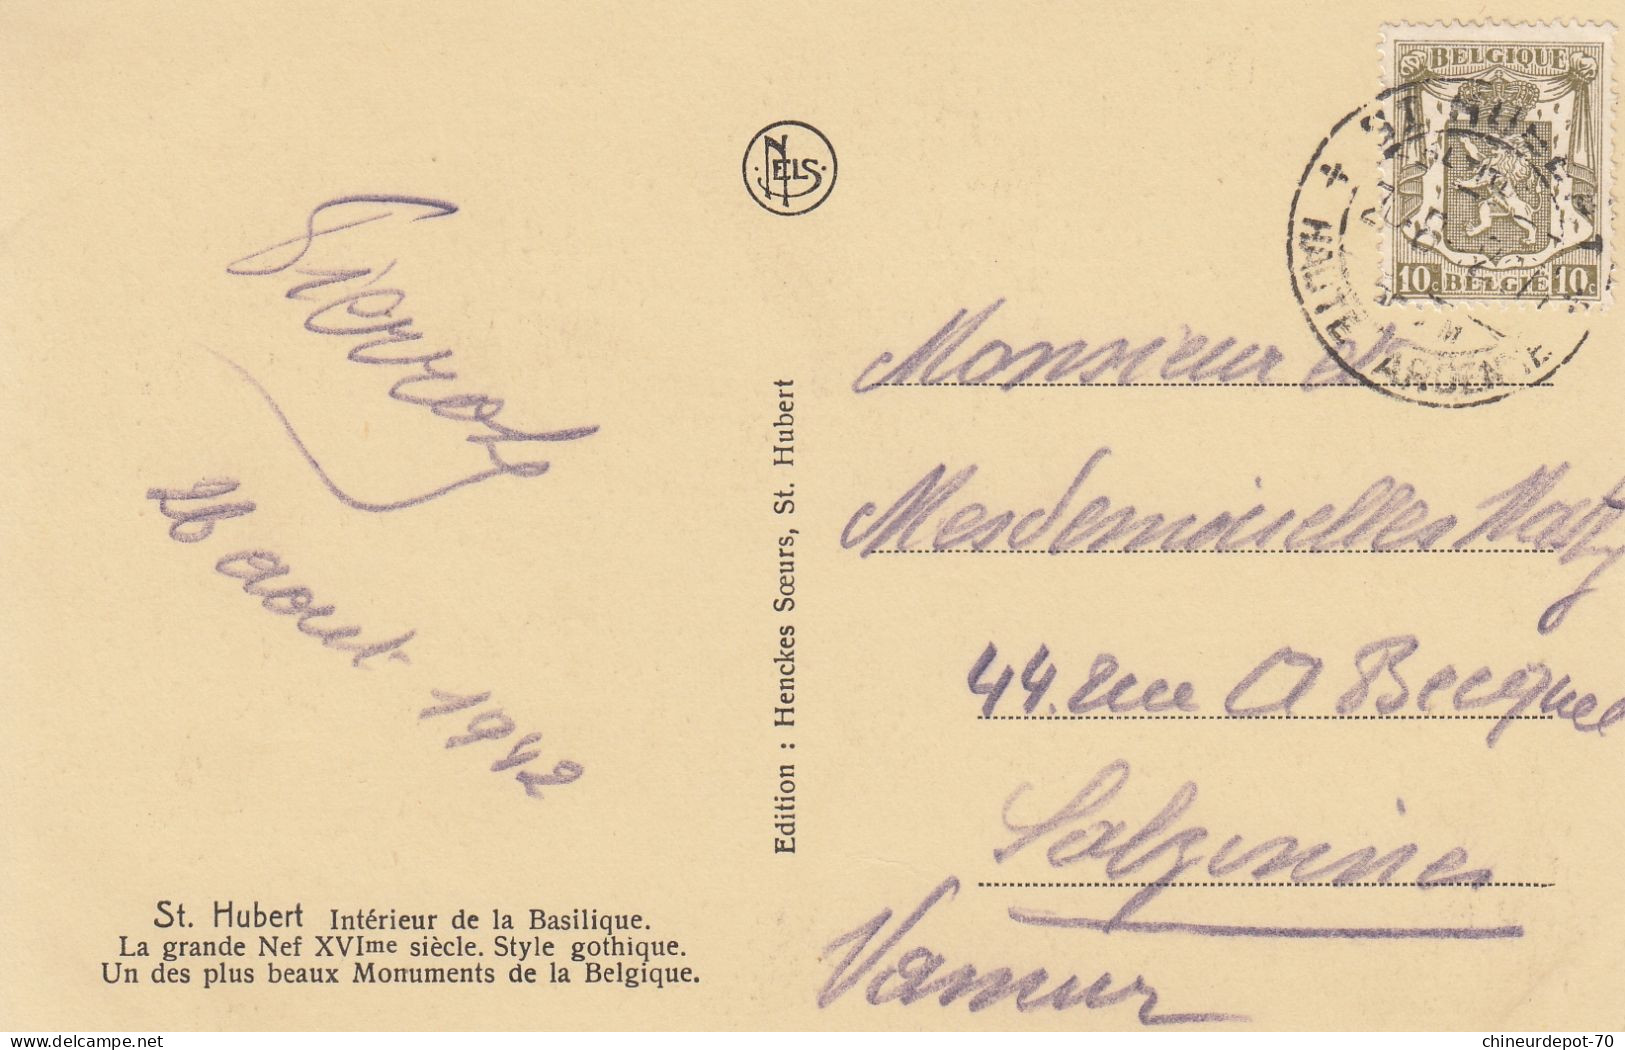 BELGIQUE
10c BELGIË 10c
ST HUBERT
HAUTE ARDENNE
NELS
Pierrot
26 aout 1942
Edition : Henckes Sœurs, St. Hubert
Monsieur et
Mesdemoiselles
44. rue A Becquet
Salzinnes
Namur
St. Hubert Intérieur de la Basilique.
La grande Nef XVIme siècle. Style gothique.
Un des plus beaux Monuments de la Belgique.
www.delcampe.net
chineurdepot-70